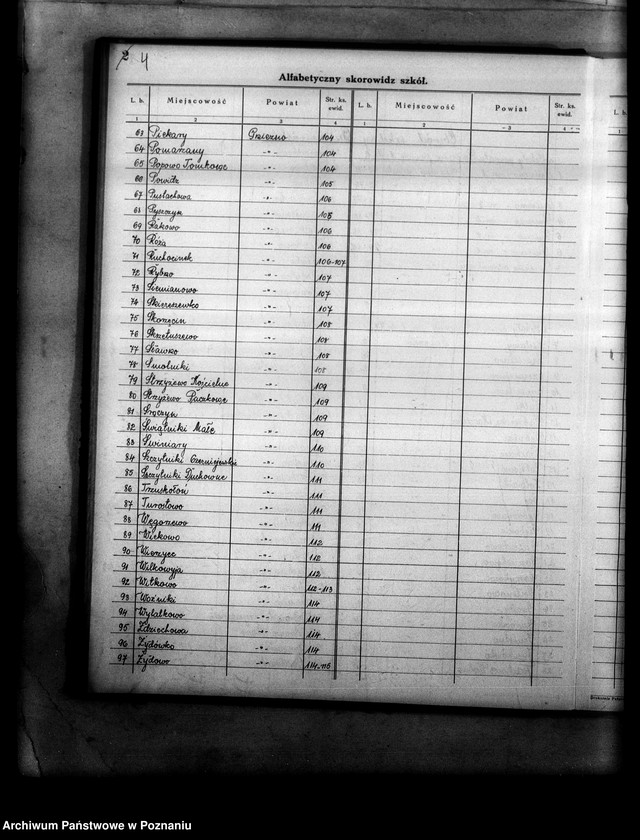 2 4
Alfabetyczny skorowidz szkół.
L. b. Miejscowość Powiat Str. ks. ewid. L. b. Miejscowość Powiat Str. ks. ewid.
1 2 3 4 1 2 3 4
63 Piekary Gniezno 104
64 Pomarzany -"- 104
65 Popowo Tomkowe -"- 104
66 Powidz -"- 105
67 Pustachowa -"- 106
68 Pyszczyn -"- 105
69 Rakowo -"- 106
70 Róża -"- 106
71 Ruchocinek -"- 106-107
72 Rybno -"- 107
73 Siemianowo -"- 107
74 Skiereszewko -"- 107
75 Skorzęcin -"- 108
76 Skrzetuszewo -"- 108
77 Sławno -"- 108
78 Smolniki -"- 108
79 Strzyżewo Kościelne -"- 109
80 Strzyżewo Paczkowe -"- 109
81 -"- 109
82 Świątniki Małe -"- 109
83 Świniary -"- 110
84 Szczytniki Czerniejewskie -"- 110
85 Szczytniki Duchowne -"- 111
86 Trzuskołoń -"- 111
87 Turostowo -"- 111
88 Węgorzewo -"- 111
89 Wiekowo -"- 112
90 Wierzyce -"- 112
91 Wilkowyja -"- 112
92 Witkowo -"- 112-113
93 Woźniki -"- 114
94 Wylatkowo -"- 114
95 Zdziechowa -"- 114
96 Żydówko -"- 114
97 Żydowo -"- 114-115
Archiwum Państwowe w Poznaniu